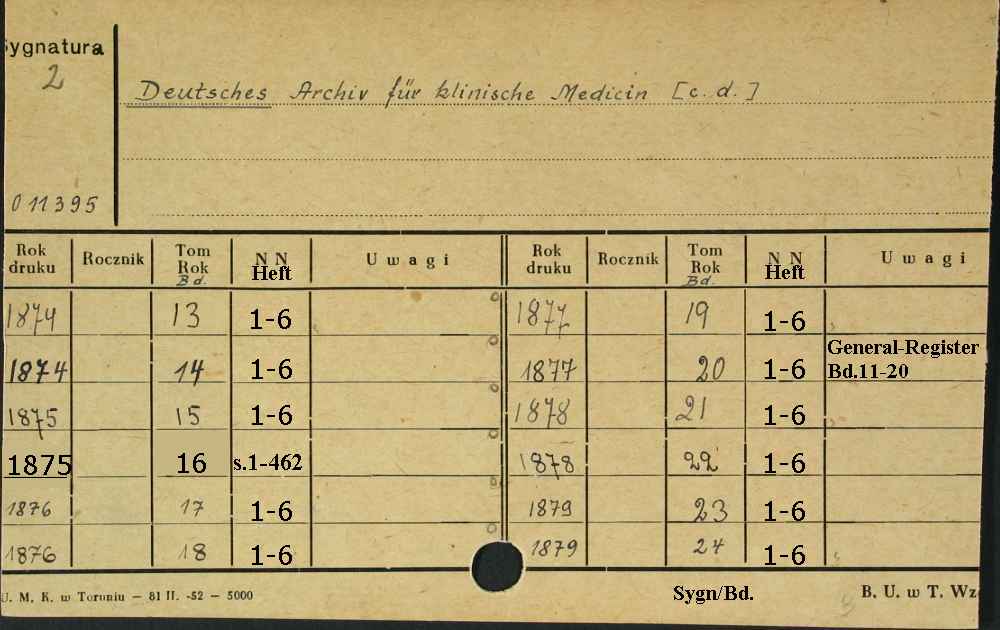 Sygnatura
2
Deutsches Archiv für klinische Medicin [c. d.]
011395
Rok druku Rocznik Tom Rok Bd. N N Heft Uwagi Rok druku Rocznik Tom Rok Bd. N N Heft Uwagi
1874 13 1-6 1877 19 1-6
1874 14 1-6 1877 20 1-6 General-Register Bd.11-20
1875 15 1-6 1878 21 1-6
1875 16 s.1-462 1878 22 1-6
1876 17 1-6 1879 23 1-6
1876 18 1-6 1879 24 1-6
U. M. K. w Toruniu — 81 II. -52 — 5000 Sygn/Bd. B. U. w T. Wz